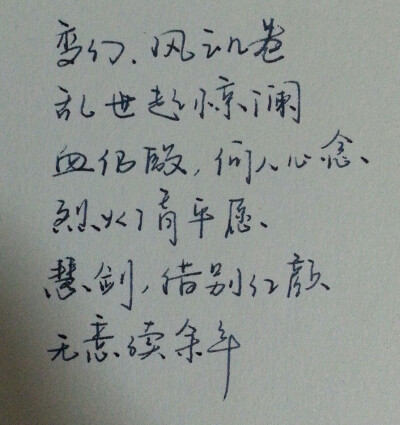 变幻、风云卷
乱世起惊澜
血仍殷，何人心念、
烈火清平愿、
慧剑，惜别红颜
无意续余年